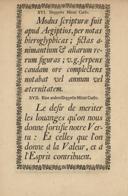 XVI. Duppels Minne Caßo.
Modus scripturæ fuit
apud Ægiptios, per notas
hieroglyphicas; fictas a-
nimantium & aliarum re-
rum figuras; v.g. serpens
caudam ore complectens
notabat vel annum vel
æternitatem.
XVII.
Le desir de meriter
les louanges qu'on nous
donne fortifie notre Ver-
tu: Et celles que l'on
donne à la Valeur, et à
l'Esprit contribuent.